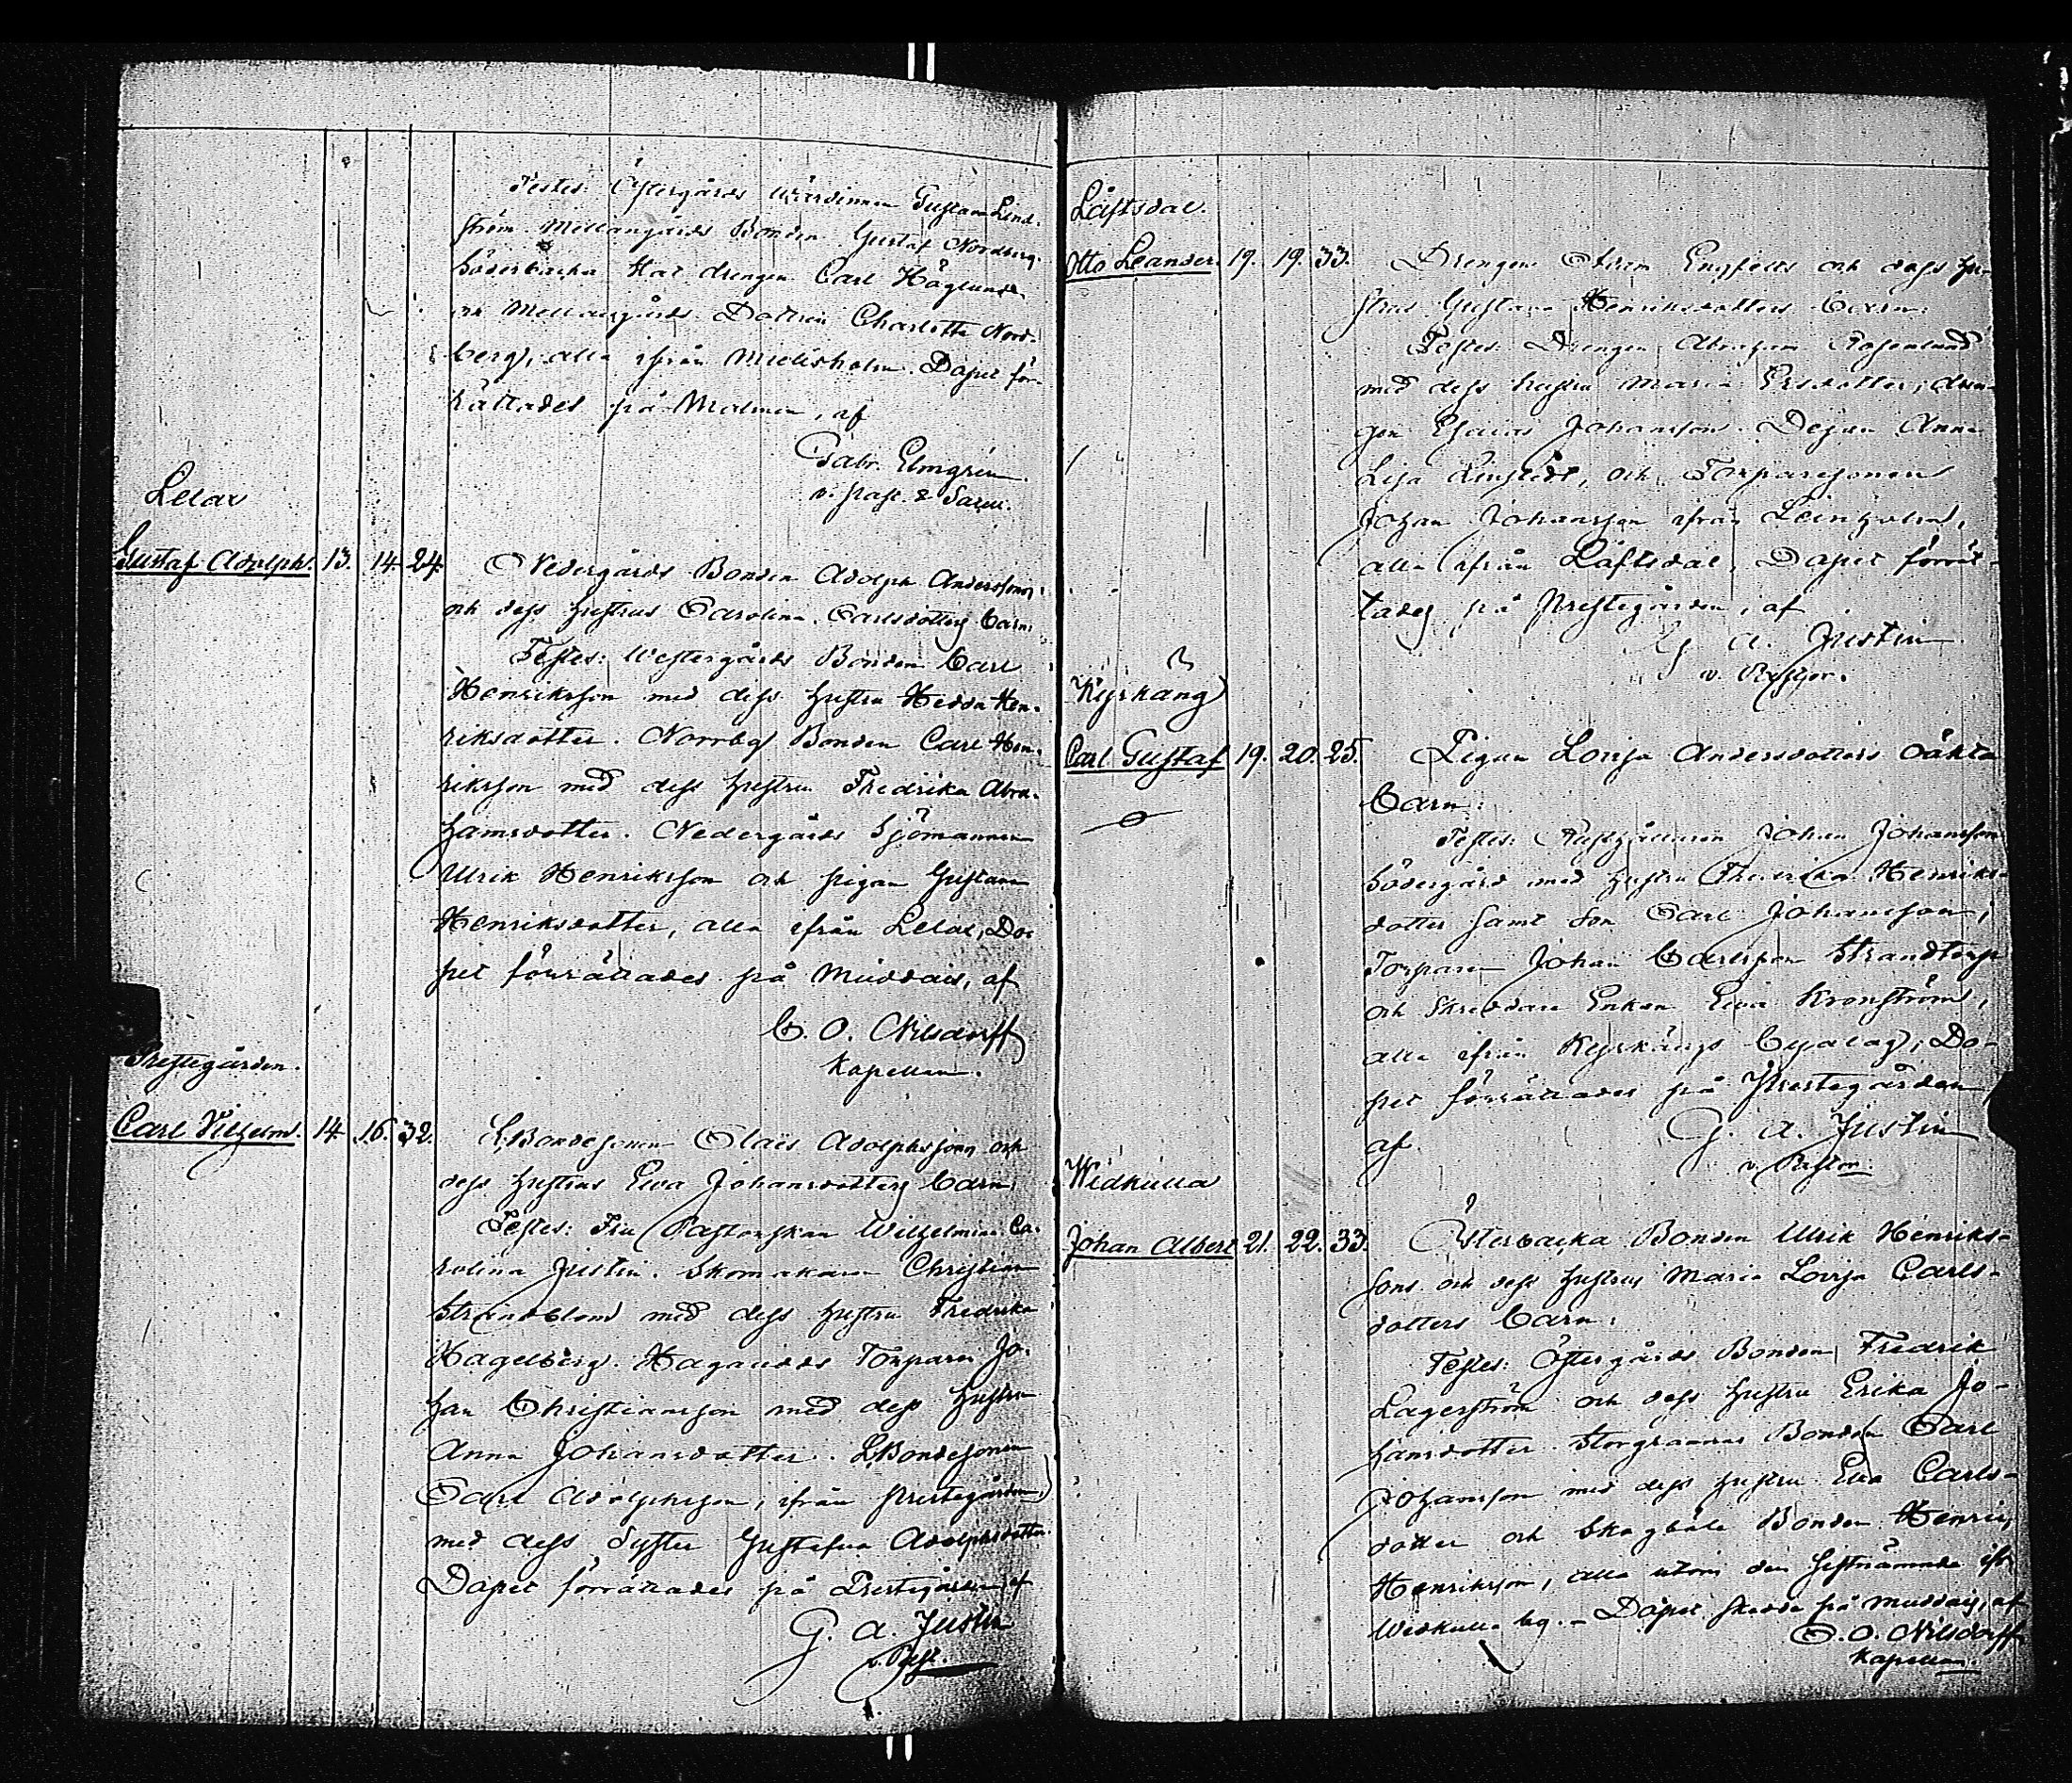 Testes: Östergårds Wärdinnan Gustava Lind-
ström. Mellangårds Bonden Gustaf Nordberg.
Söderbacka drengen Carl Häglund
och Mellangårds Dottren Charlotta Nord-
berg, alla ifrån Mielisholm. Dopet för-
rättades på Malmen, af
Gabr. Elmgrén
v. past. &
Lelax
Gustaf Adolph. 13. 14. 24. Nedergårds Bonden Adolph Anderssons
och dess hustrus Carolina Carlsdotters barn:
Testes: Westergårds Bonden Carl
Henriksson med dess hustru Hedda Hen-
riksdotter. Norrby Bonden Carl Hen-
riksson med dess hustru Fredrika Abra-
hamsdotter. Nedergårds Sjömannen
Ulrik Henriksson och pigan Gustava
Henriksdotter, alla ifrån Lelax, Do-
pet förrättades på Muddais, af
C. O. Nilsdorff
Kapellan.
Prestegården.
Carl Vilhelm. 14. 16. 32. L.Bondesonen Claës Adolphssons och
dess hustrus Ewa Johansdotters barn.
Testes: Fru Pastorskan Wilhelmina Ca-
rolina Justin. Skomakaren Christian
Strandblom med dess hustru Fredrika
Hagelberg. Haganäs Torparen Jo-
han Christiansson med dess hustru
Anna Johansdotter. L.Bondesonen
Carl Adolphsson, ifrån Prestegården,
med dess Syster Gustafva Adolphsdotter.
Dopet förrättades på Prestegården, af
G. A. Justin
v. Past.
Låftsdal.
Otto Leander. 19. 19. 33. Drengen Engfelts och dess hu-
strus Gustava Henriksdotters barn:
Testes: Drengen Abraham Rosenlund
med dess hustru Maria Ersdotter, dren-
gen Esaias Johansson. Dejan Anna
Lisa och Torparesonen
Johan Johansson ifrån Leinholm,
alla ifrån Låftsdal, Dopet förrät-
tades på Prestegården, af
G. A. Justin
v. Pastor.
Kyrkäng
Carl Gustaf 19. 20. 25. Pigan Lovisa Andersdotters oäkta
barn:
Testes: Rusthållaren Johan Johansson
Södergård med hustru Fredrika Henriks-
dotter samt Son Carl Johansson,
Torparen Johan Carlsson Strandtorp
och Skreddare Enkan Ewa Kronström,
alla ifrån Kyrkängs byalag, Do-
pet förrättades på Prestegården
af G. A. Justin
v. Pastor.
Widkulla
Johan Albert 21. 22. 33. Österbacka Bonden Ulrik Henriks-
sons och dess hustrus Maria Lovisa Carls-
dotters barn:
Testes: Östergårds Bonden Fredrik
Lagerström och dess hustru Erika Jo-
hansdotter. Bonden Carl
Johansson med dess hustru Eva Carls-
dotter och Skogböle Bonden Henrik
Henriksson, alla utom den sistnämnde ifr.
Widkulla by. - Dopet skedde på Muddais, af
C. O. Nilsdorff
Kapellan.